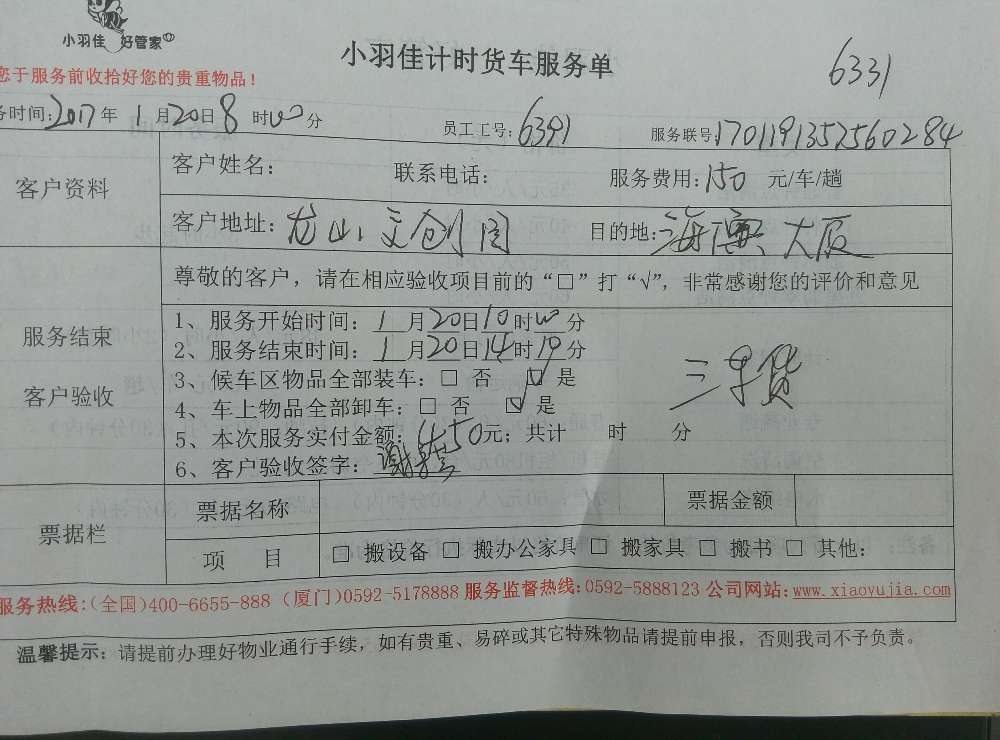 小羽佳 好管家
小羽佳计时货车服务单
6331
您于服务前收拾好您的贵重物品！
务时间：2017年 1月20日8时00分 员工工号：6391 服务联号：1701191352560284
客户资料
客户姓名： 联系电话： 服务费用：150 元/车/趟
客户地址：龙山文创园 目的地：海澳大厦
服务结束
客户验收
尊敬的客户，请在相应验收项目前的“□”打“√”，非常感谢您的评价和意见
1、服务开始时间：1月20日10时00分
2、服务结束时间：1月20日14时19分
3、候车区物品全部装车：□ 否 ☑ 是
三车货
4、车上物品全部卸车：□ 否 ☑ 是
5、本次服务实付金额：450元；共计 时 分
6、客户验收签字：
票据栏
票据名称 票据金额
项 目 □ 搬设备 □ 搬办公家具 □ 搬家具 □ 搬书 □ 其他：
服务热线：(全国)400-6655-888 (厦门)0592-5178888 服务监督热线：0592-5888123 公司网站：www.xiaoyujia.com
温馨提示：请提前办理好物业通行手续，如有贵重、易碎或其它特殊物品请提前申报，否则我司不予负责。